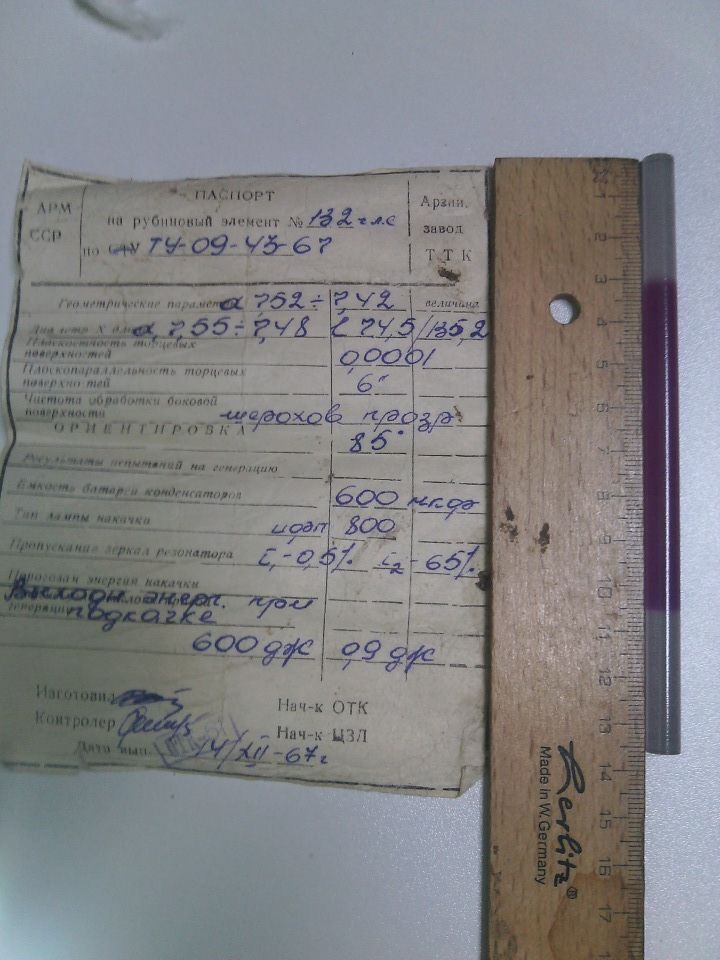 ПАСПОРТ
АРМ ССР
на рубиновый элемент № 132 глс
по ТУ-09-43-67
Арзни.
завод
ТТК
Геометрические параметры d 7,52 ÷ 7,42 величина
Диаметр Х длина d 7,55 ÷ 7,48 ℓ 74,5/135,2
Плоскостность торцевых
поверхностей 0,00001
Плоскопараллельность торцевых
поверхно тей 6"
Чистота обработки боковой
поверхности шерохов прозр
ОРИЕНТИРОВКА 85°
Результаты испытаний на генерацию
Емкость батарей конденсаторов 600 мкф
Тип лампы накачки ифп 800
Пропускание зеркал резонатора τ₁-0,5% τ₂-65%
Пороговая энергия накачки
Выходн энерг. при
генерации подкачке
600 дж 0,9 дж
Изготовил
Нач-к ОТК
Контролер
Нач-к ЦЗЛ
Дата вып. 14/XII-67г
1
2
3
4
5
6
7
8
9
10
11
12
13
14
15
16
17
Herlitz®
Made in W.Germany